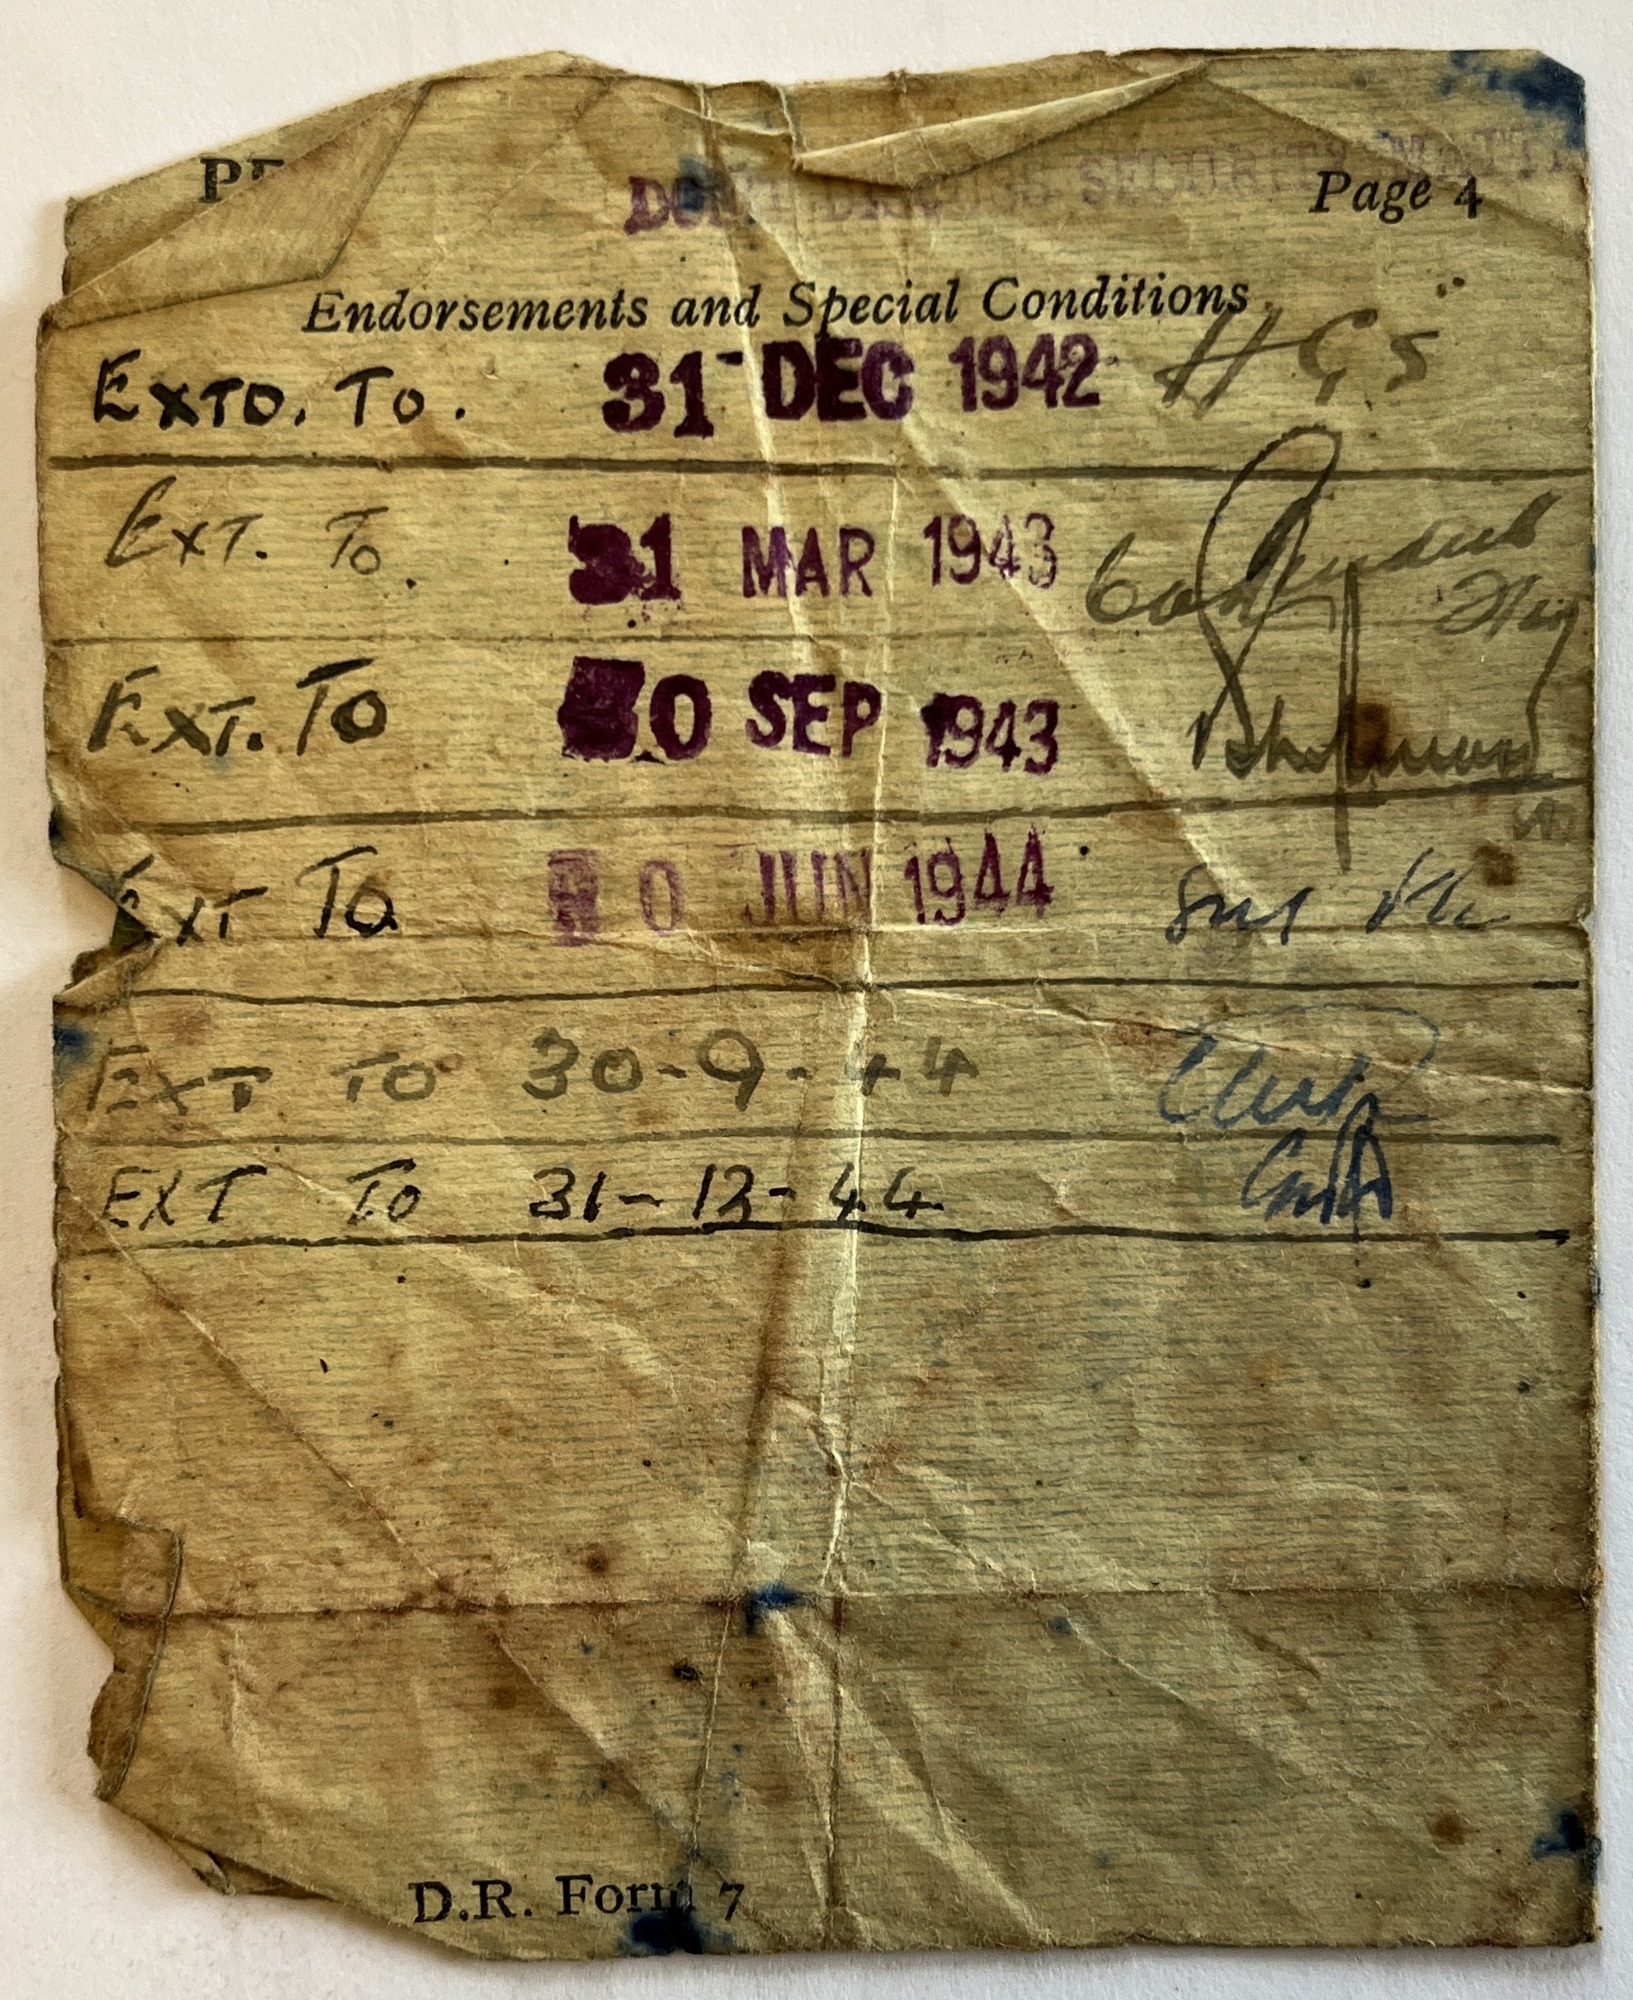 Page 4
DON'T DISCUSS SECURITY
Endorsements and Special Conditions
EXTD. TO. 31 DEC 1942 HGS
EXT. TO. 31 MAR 1943
EXT. TO 30 SEP 1943
EXT TO 30 JUN 1944
EXT TO 30-9-44
EXT TO 31-12-44
D.R. Form 7